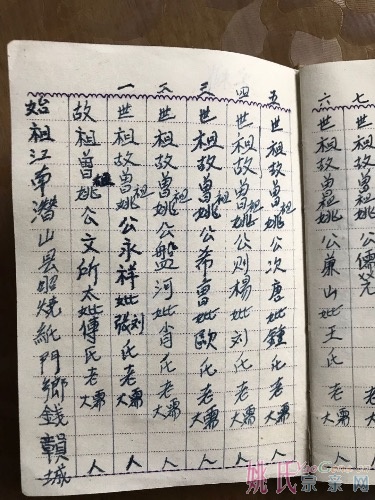 始祖江南潜山县昭燒紙門鄉錢賴城
故祖曾祖姚公文所太妣傅氏老孺人
一世祖故曾祖姚公永祥妣張刘氏老孺人
二世祖故曾祖姚公盤河妣肖氏老孺人
三世祖故曾祖姚公希曾妣歐氏老孺人
四世祖故曾祖姚公則楊妣刘氏老孺人
五世祖故曾祖姚公次唐妣鍾氏老孺人
六世祖故曾祖姚公兼山妣王氏老孺人
七世祖故曾祖姚公儒
姚氏宗亲网